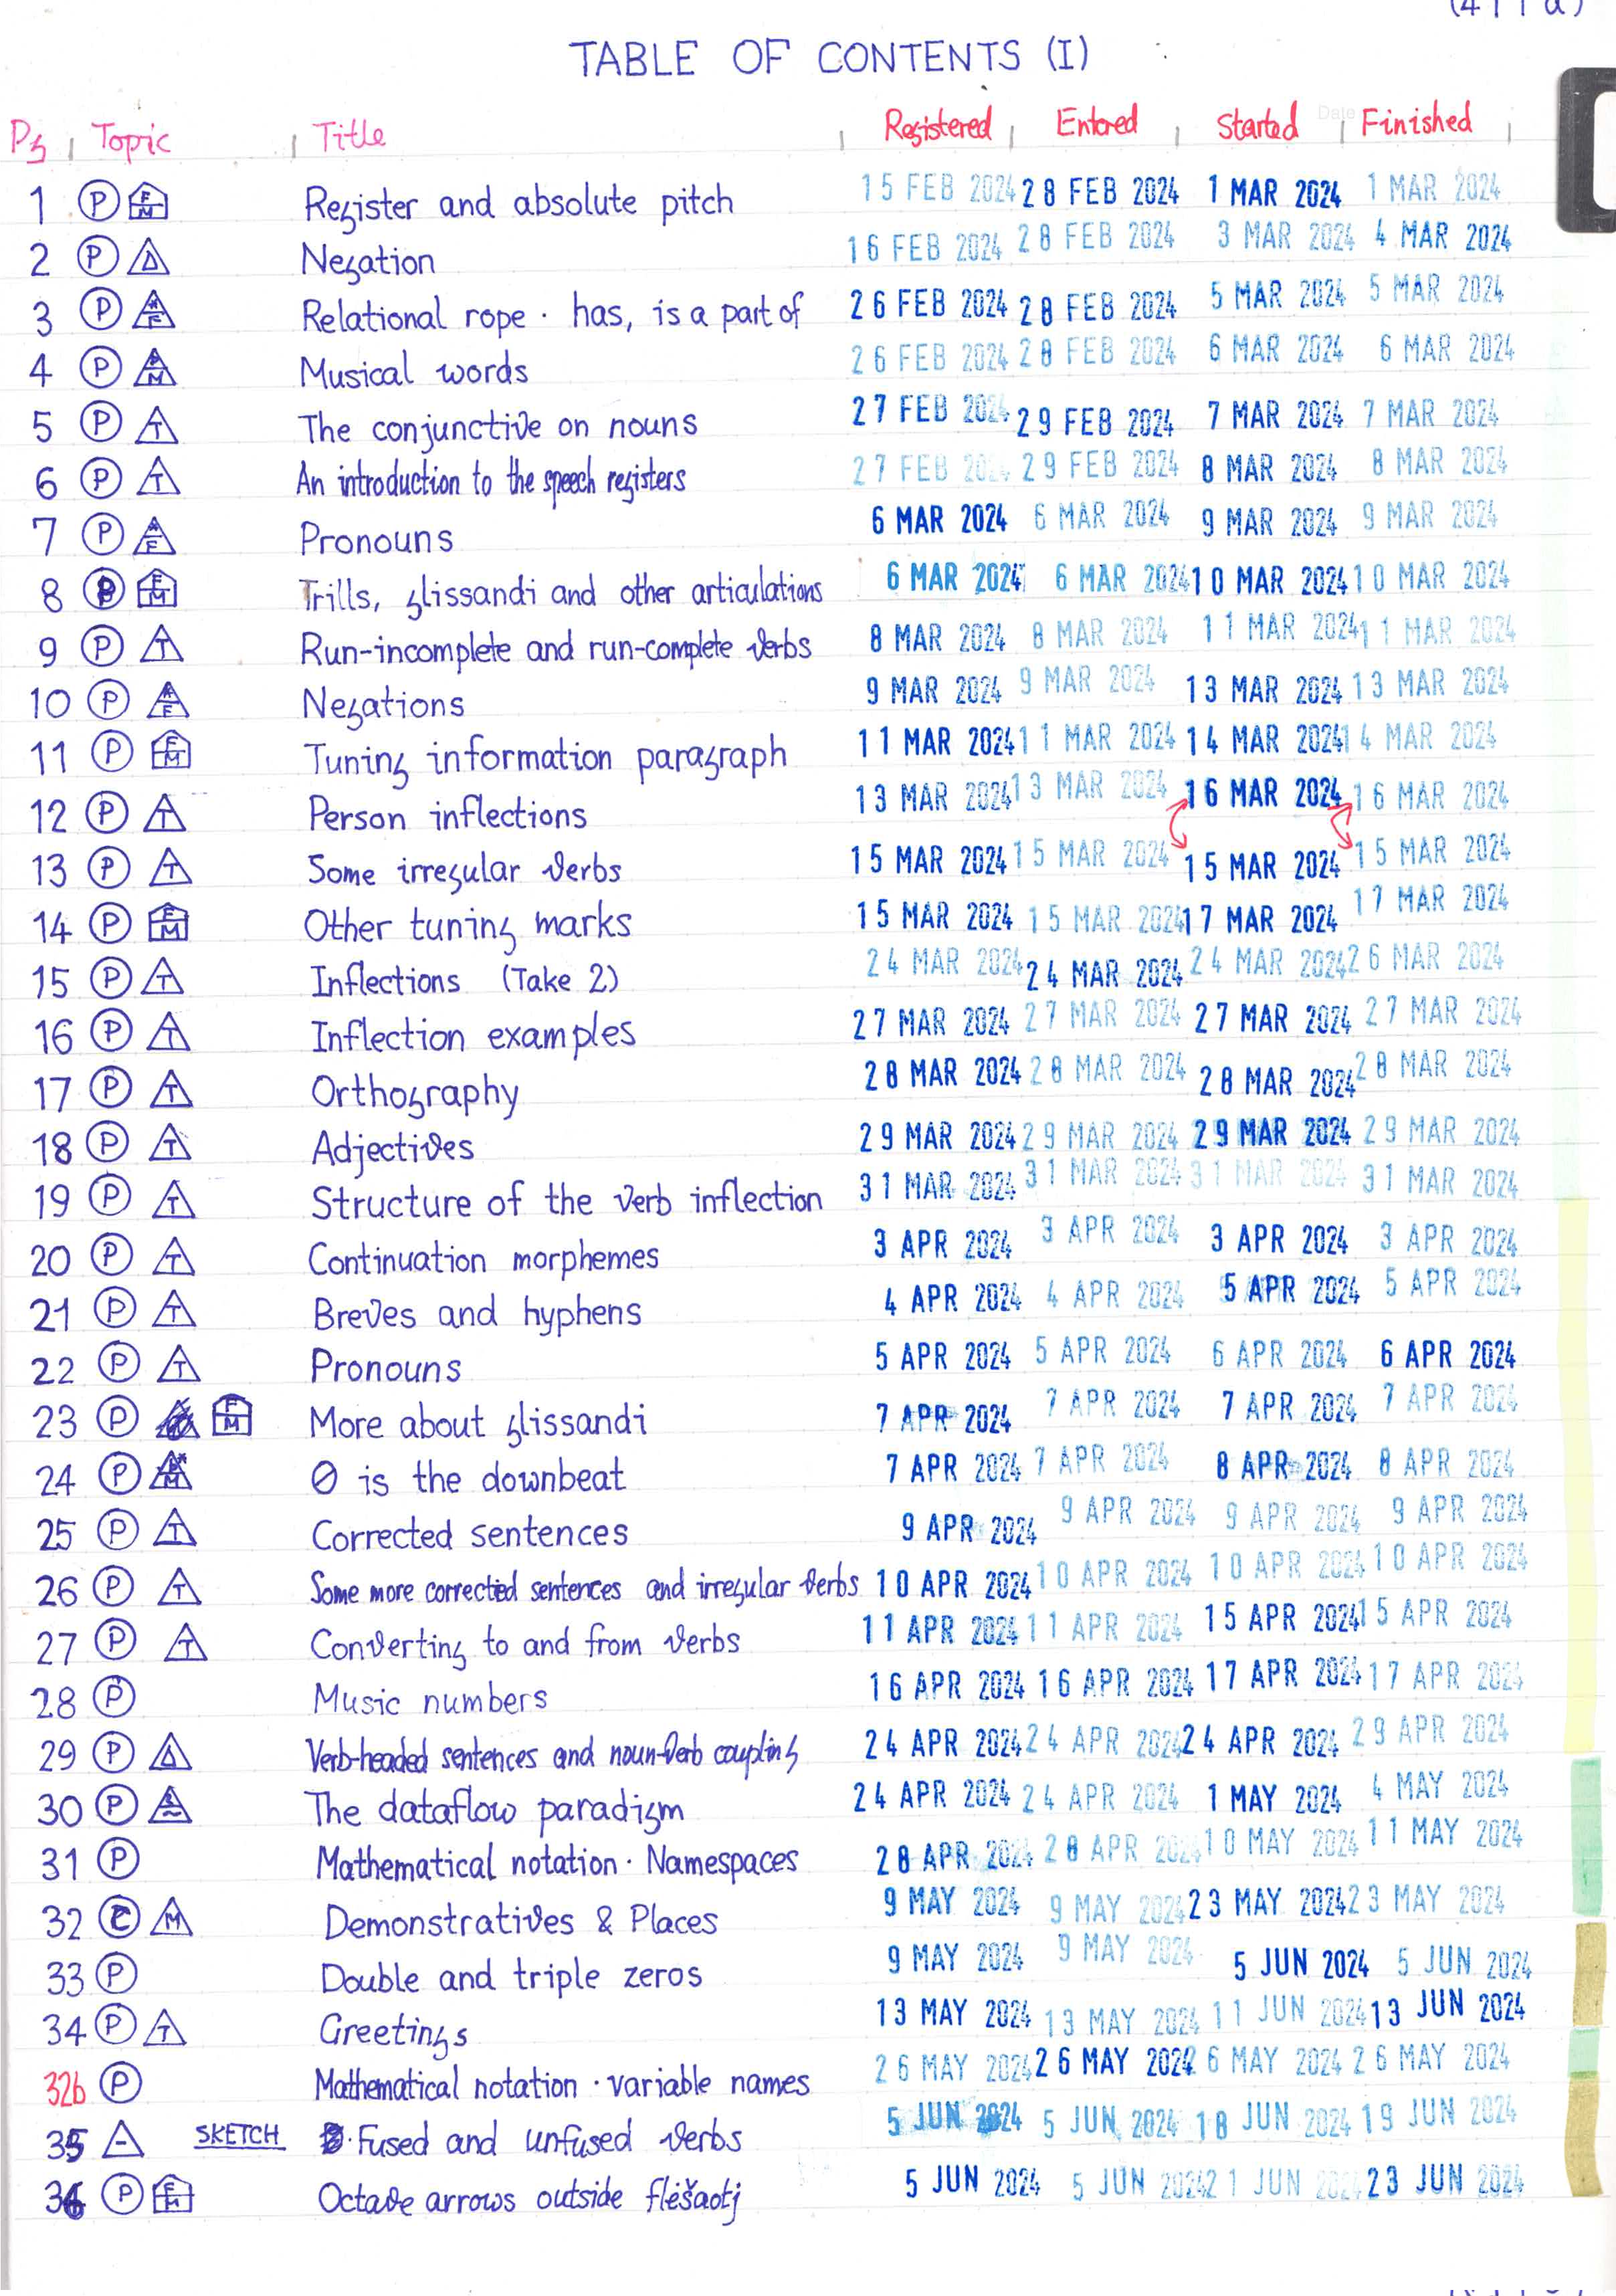 TABLE OF CONTENTS (I)
Pg Topic Title Registered Entered Started Date Finished
1 P F M Register and absolute pitch 15 FEB 2024 28 FEB 2024 1 MAR 2024 1 MAR 2024
2 P Δ Negation 16 FEB 2024 28 FEB 2024 3 MAR 2024 4 MAR 2024
3 P Relational rope · has, is a part of 26 FEB 2024 28 FEB 2024 5 MAR 2024 5 MAR 2024
4 P M Musical words 26 FEB 2024 28 FEB 2024 6 MAR 2024 6 MAR 2024
5 P T The conjunctive on nouns 27 FEB 2024 29 FEB 2024 7 MAR 2024 7 MAR 2024
6 P T An introduction to the speech registers 27 FEB 2024 29 FEB 2024 8 MAR 2024 8 MAR 2024
7 P Pronouns 6 MAR 2024 6 MAR 2024 9 MAR 2024 9 MAR 2024
8 P F M Trills, glissandi and other articulations 6 MAR 2024 6 MAR 2024 10 MAR 2024 10 MAR 2024
9 P T Run-incomplete and run-complete verbs 8 MAR 2024 8 MAR 2024 11 MAR 2024 11 MAR 2024
10 P Negations 9 MAR 2024 9 MAR 2024 13 MAR 2024 13 MAR 2024
11 P F M Tuning information paragraph 11 MAR 2024 11 MAR 2024 14 MAR 2024 14 MAR 2024
12 P T Person inflections 13 MAR 2024 13 MAR 2024 16 MAR 2024 16 MAR 2024
13 P T Some irregular verbs 15 MAR 2024 15 MAR 2024 15 MAR 2024 15 MAR 2024
14 P F M Other tuning marks 15 MAR 2024 15 MAR 2024 17 MAR 2024 17 MAR 2024
15 P T Inflections (Take 2) 24 MAR 2024 24 MAR 2024 24 MAR 2024 26 MAR 2024
16 P T Inflection examples 27 MAR 2024 27 MAR 2024 27 MAR 2024 27 MAR 2024
17 P T Orthography 28 MAR 2024 28 MAR 2024 28 MAR 2024 28 MAR 2024
18 P T Adjectives 29 MAR 2024 29 MAR 2024 29 MAR 2024 29 MAR 2024
19 P T Structure of the verb inflection 31 MAR 2024 31 MAR 2024 31 MAR 2024 31 MAR 2024
20 P T Continuation morphemes 3 APR 2024 3 APR 2024 3 APR 2024 3 APR 2024
21 P T Breves and hyphens 4 APR 2024 4 APR 2024 5 APR 2024 5 APR 2024
22 P T Pronouns 5 APR 2024 5 APR 2024 6 APR 2024 6 APR 2024
23 P F M More about glissandi 7 APR 2024 7 APR 2024 7 APR 2024 7 APR 2024
24 P M 0 is the downbeat 7 APR 2024 7 APR 2024 8 APR 2024 8 APR 2024
25 P T Corrected sentences 9 APR 2024 9 APR 2024 9 APR 2024 9 APR 2024
26 P T Some more corrected sentences and irregular verbs 10 APR 2024 10 APR 2024 10 APR 2024 10 APR 2024
27 P T Converting to and from verbs 11 APR 2024 11 APR 2024 15 APR 2024 15 APR 2024
28 P Music numbers 16 APR 2024 16 APR 2024 17 APR 2024 17 APR 2024
29 P Δ Verb-headed sentences and noun-verb coupling 24 APR 2024 24 APR 2024 24 APR 2024 29 APR 2024
30 P The dataflow paradigm 24 APR 2024 24 APR 2024 1 MAY 2024 4 MAY 2024
31 P Mathematical notation · Namespaces 28 APR 2024 28 APR 2024 10 MAY 2024 11 MAY 2024
32 C M Demonstratives & Places 9 MAY 2024 9 MAY 2024 23 MAY 2024 23 MAY 2024
33 P Double and triple zeros 9 MAY 2024 9 MAY 2024 5 JUN 2024 5 JUN 2024
34 P T Greetings 13 MAY 2024 13 MAY 2024 11 JUN 2024 13 JUN 2024
32b P Mathematical notation · variable names 26 MAY 2024 26 MAY 2024 26 MAY 2024 26 MAY 2024
35 SKETCH Fused and unfused verbs 5 JUN 2024 5 JUN 2024 18 JUN 2024 19 JUN 2024
36 P F M Octave arrows outside flėšaotj 5 JUN 2024 5 JUN 2024 21 JUN 2024 23 JUN 2024